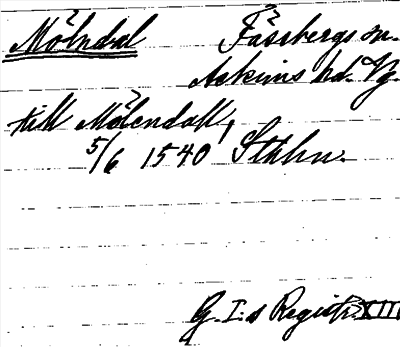 Mölndal Fässbergs sn.
Askims hd. Vg.
till Mölendall,
5/6 1540 Sthlm.
G. I:s Registr. XIII